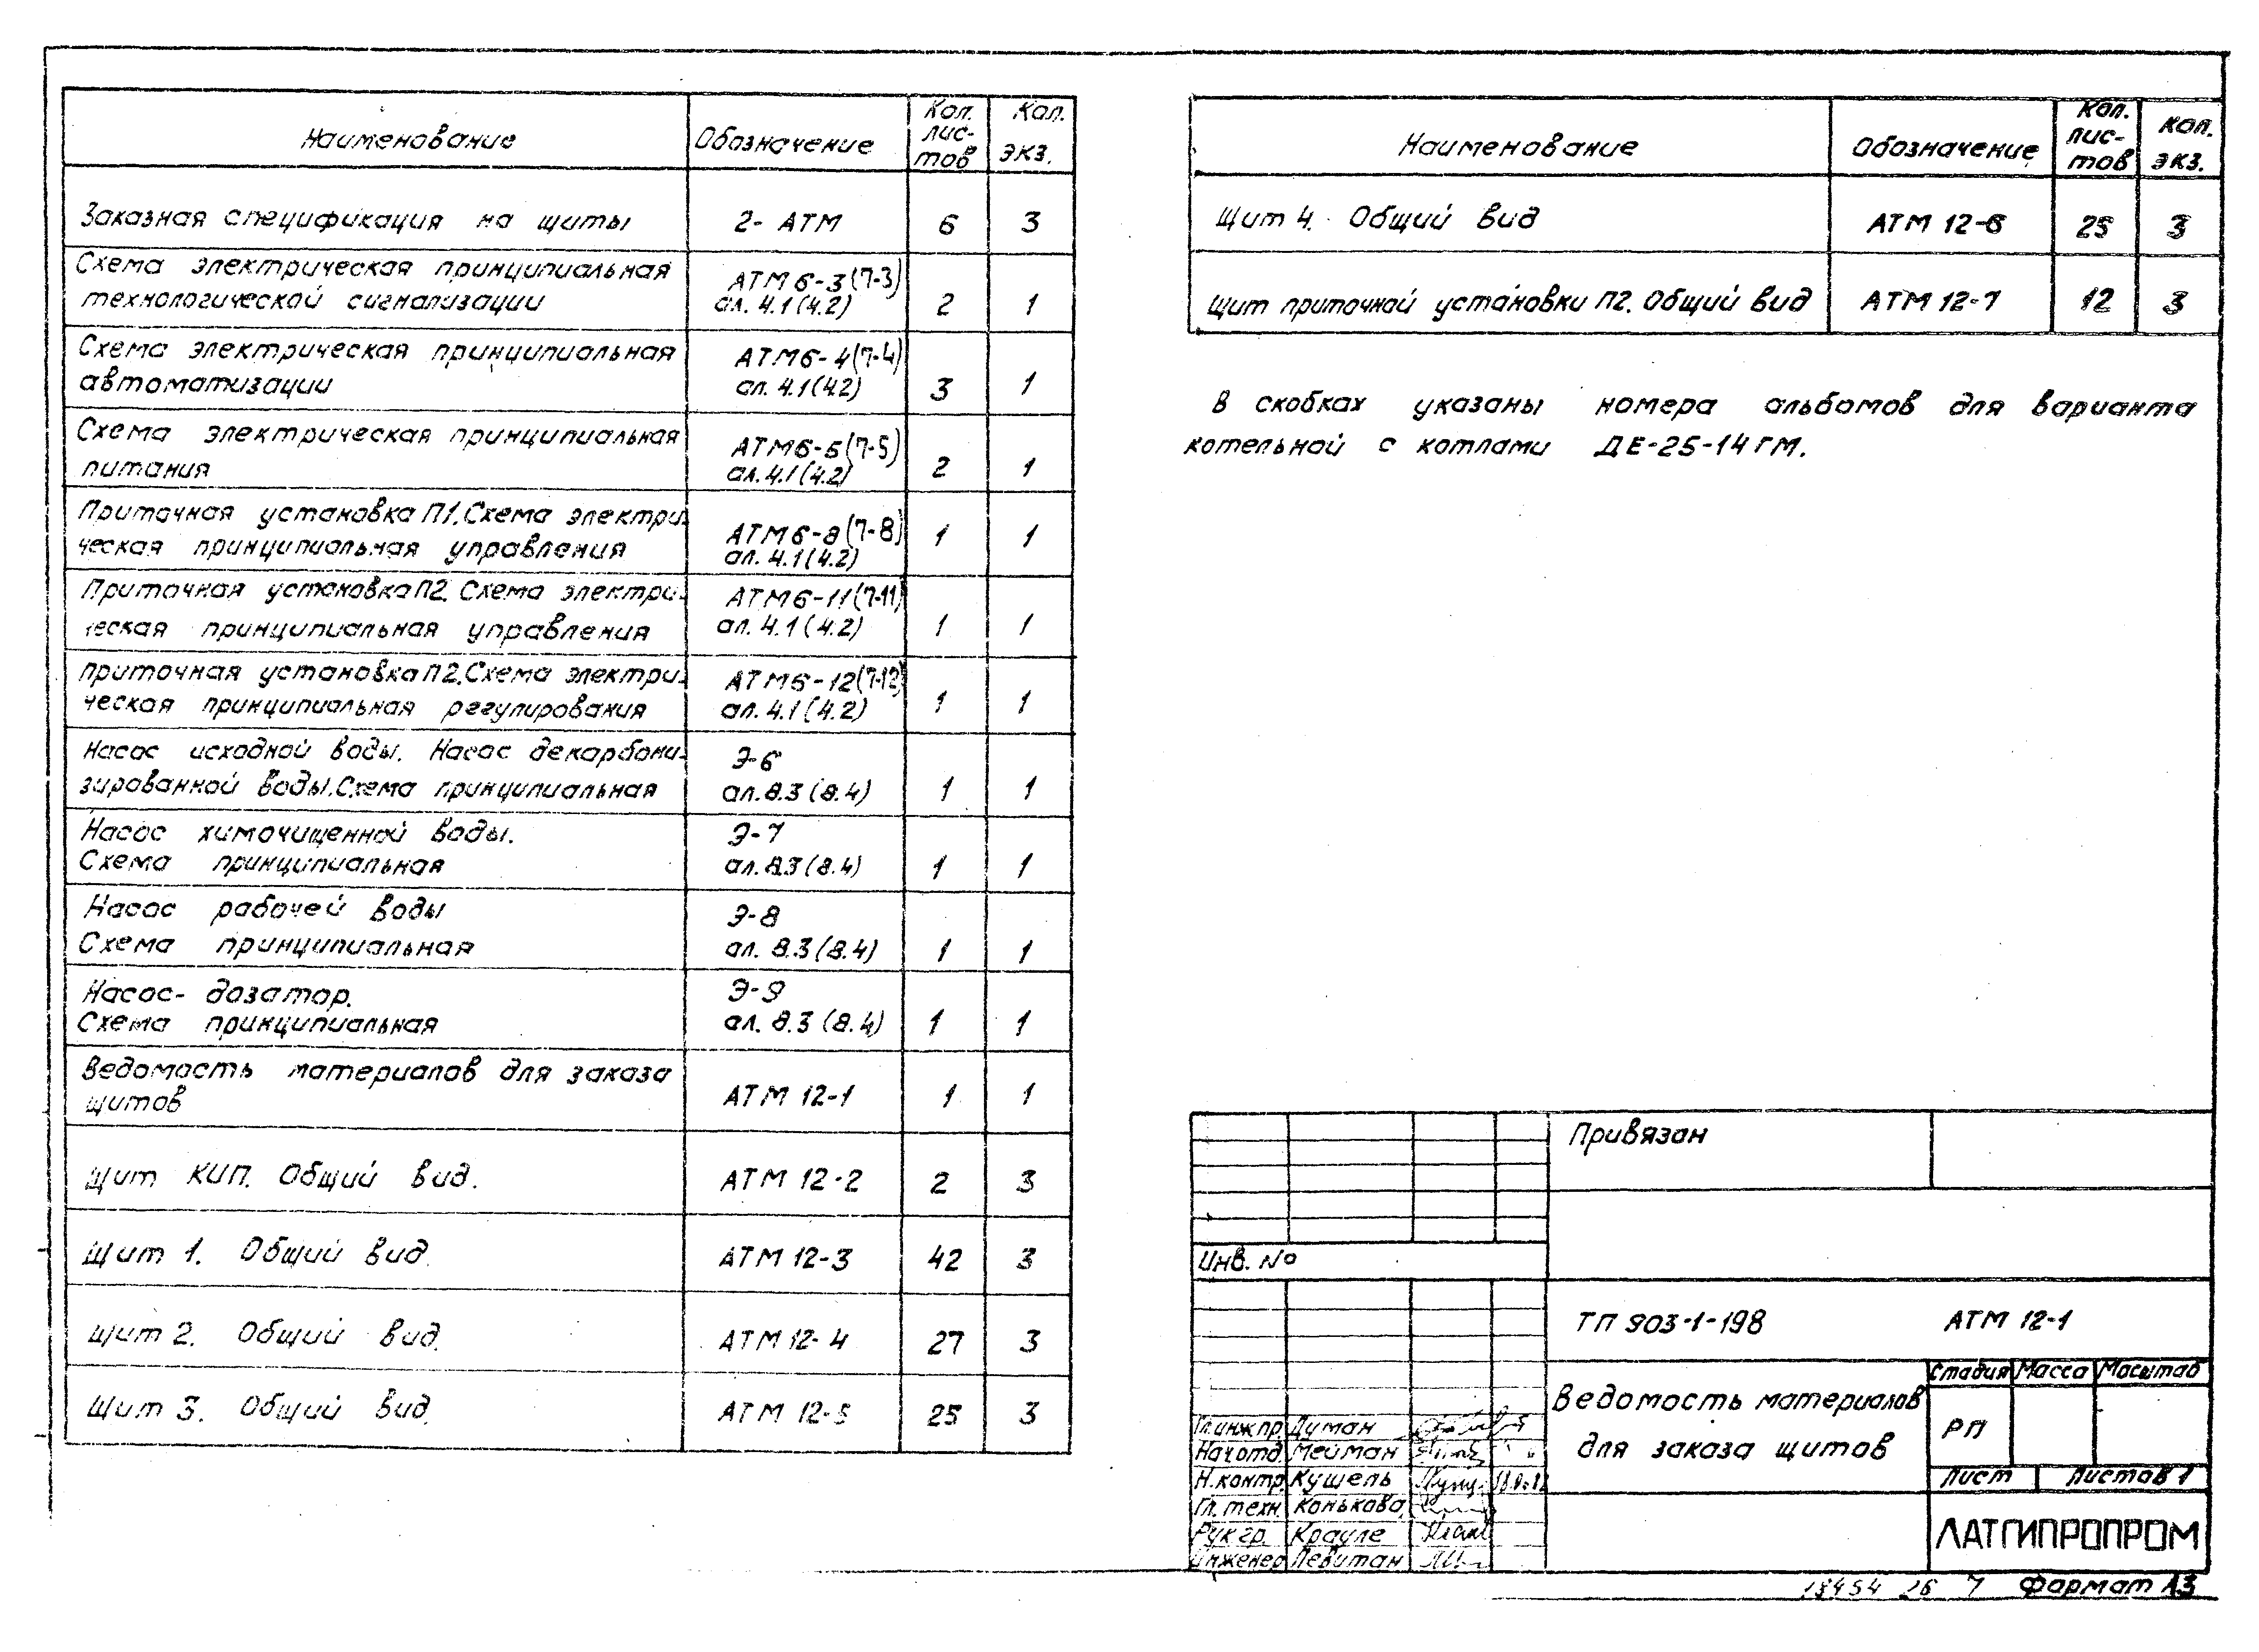 Наименование Обозначение Кол. лис-тов Кол. экз.
Заказная спецификация на щиты 2-АТМ 6 3
Схема электрическая принципиальная АТМ6-3(7-3)
технологической сигнализации ал. 4.1(4.2) 2 1
Схема электрическая принципиальная АТМ6-4(7-4)
автоматизации ал. 4.1(4.2) 3 1
Схема электрическая принципиальная АТМ6-5(7-5)
питания ал. 4.1(4.2) 2 1
Приточная установка П1. Схема электри- АТМ6-8(7-8) 1 1
ческая принципиальная управления ал. 4.1(4.2)
Приточная установка П2. Схема электри- АТМ6-11(7-11)
ческая принципиальная управления ал. 4.1(4.2) 1 1
Приточная установка П2. Схема электри- АТМ6-12(7-12)
ческая принципиальная регулирования ал. 4.1(4.2) 1 1
Насос исходной воды. Насос декарбони- Э-6
зированной воды. Схема принципиальная ал. 8.3(8.4) 1 1
Насос химочищенной воды. Э-7
Схема принципиальная ал. 8.3(8.4) 1 1
Насос рабочей воды Э-8
Схема принципиальная ал. 8.3(8.4) 1 1
Насос-дозатор. Э-9
Схема принципиальная ал. 8.3(8.4) 1 1
Ведомость материалов для заказа
щитов АТМ 12-1 1 1
Щит КИП. Общий вид. АТМ 12-2 2 3
Щит 1. Общий вид. АТМ 12-3 42 3
Щит 2. Общий вид. АТМ 12-4 27 3
Щит 3. Общий вид. АТМ 12-5 25 3
Наименование Обозначение Кол. лис-тов Кол. экз.
Щит 4. Общий вид АТМ 12-6 25 3
Щит приточной установки П2. Общий вид АТМ 12-7 12 3
В скобках указаны номера альбомов для варианта
котельной с котлами ДЕ-25-14ГМ.
Привязан
Инв. №
ТП 903-1-198 АТМ 12-1
Ведомость материалов
для заказа щитов
Стадия Масса Масштаб
РП
Лист Листов 1
ЛАТГИПРОПРОМ
Гл.инж.пр. Думан
Нач.отд. Мейман
Н.контр. Кушель
Гл.техн. Конькова
Рук.гр. Крауле
Инженер Левитан
18454 26 7 Формат А3